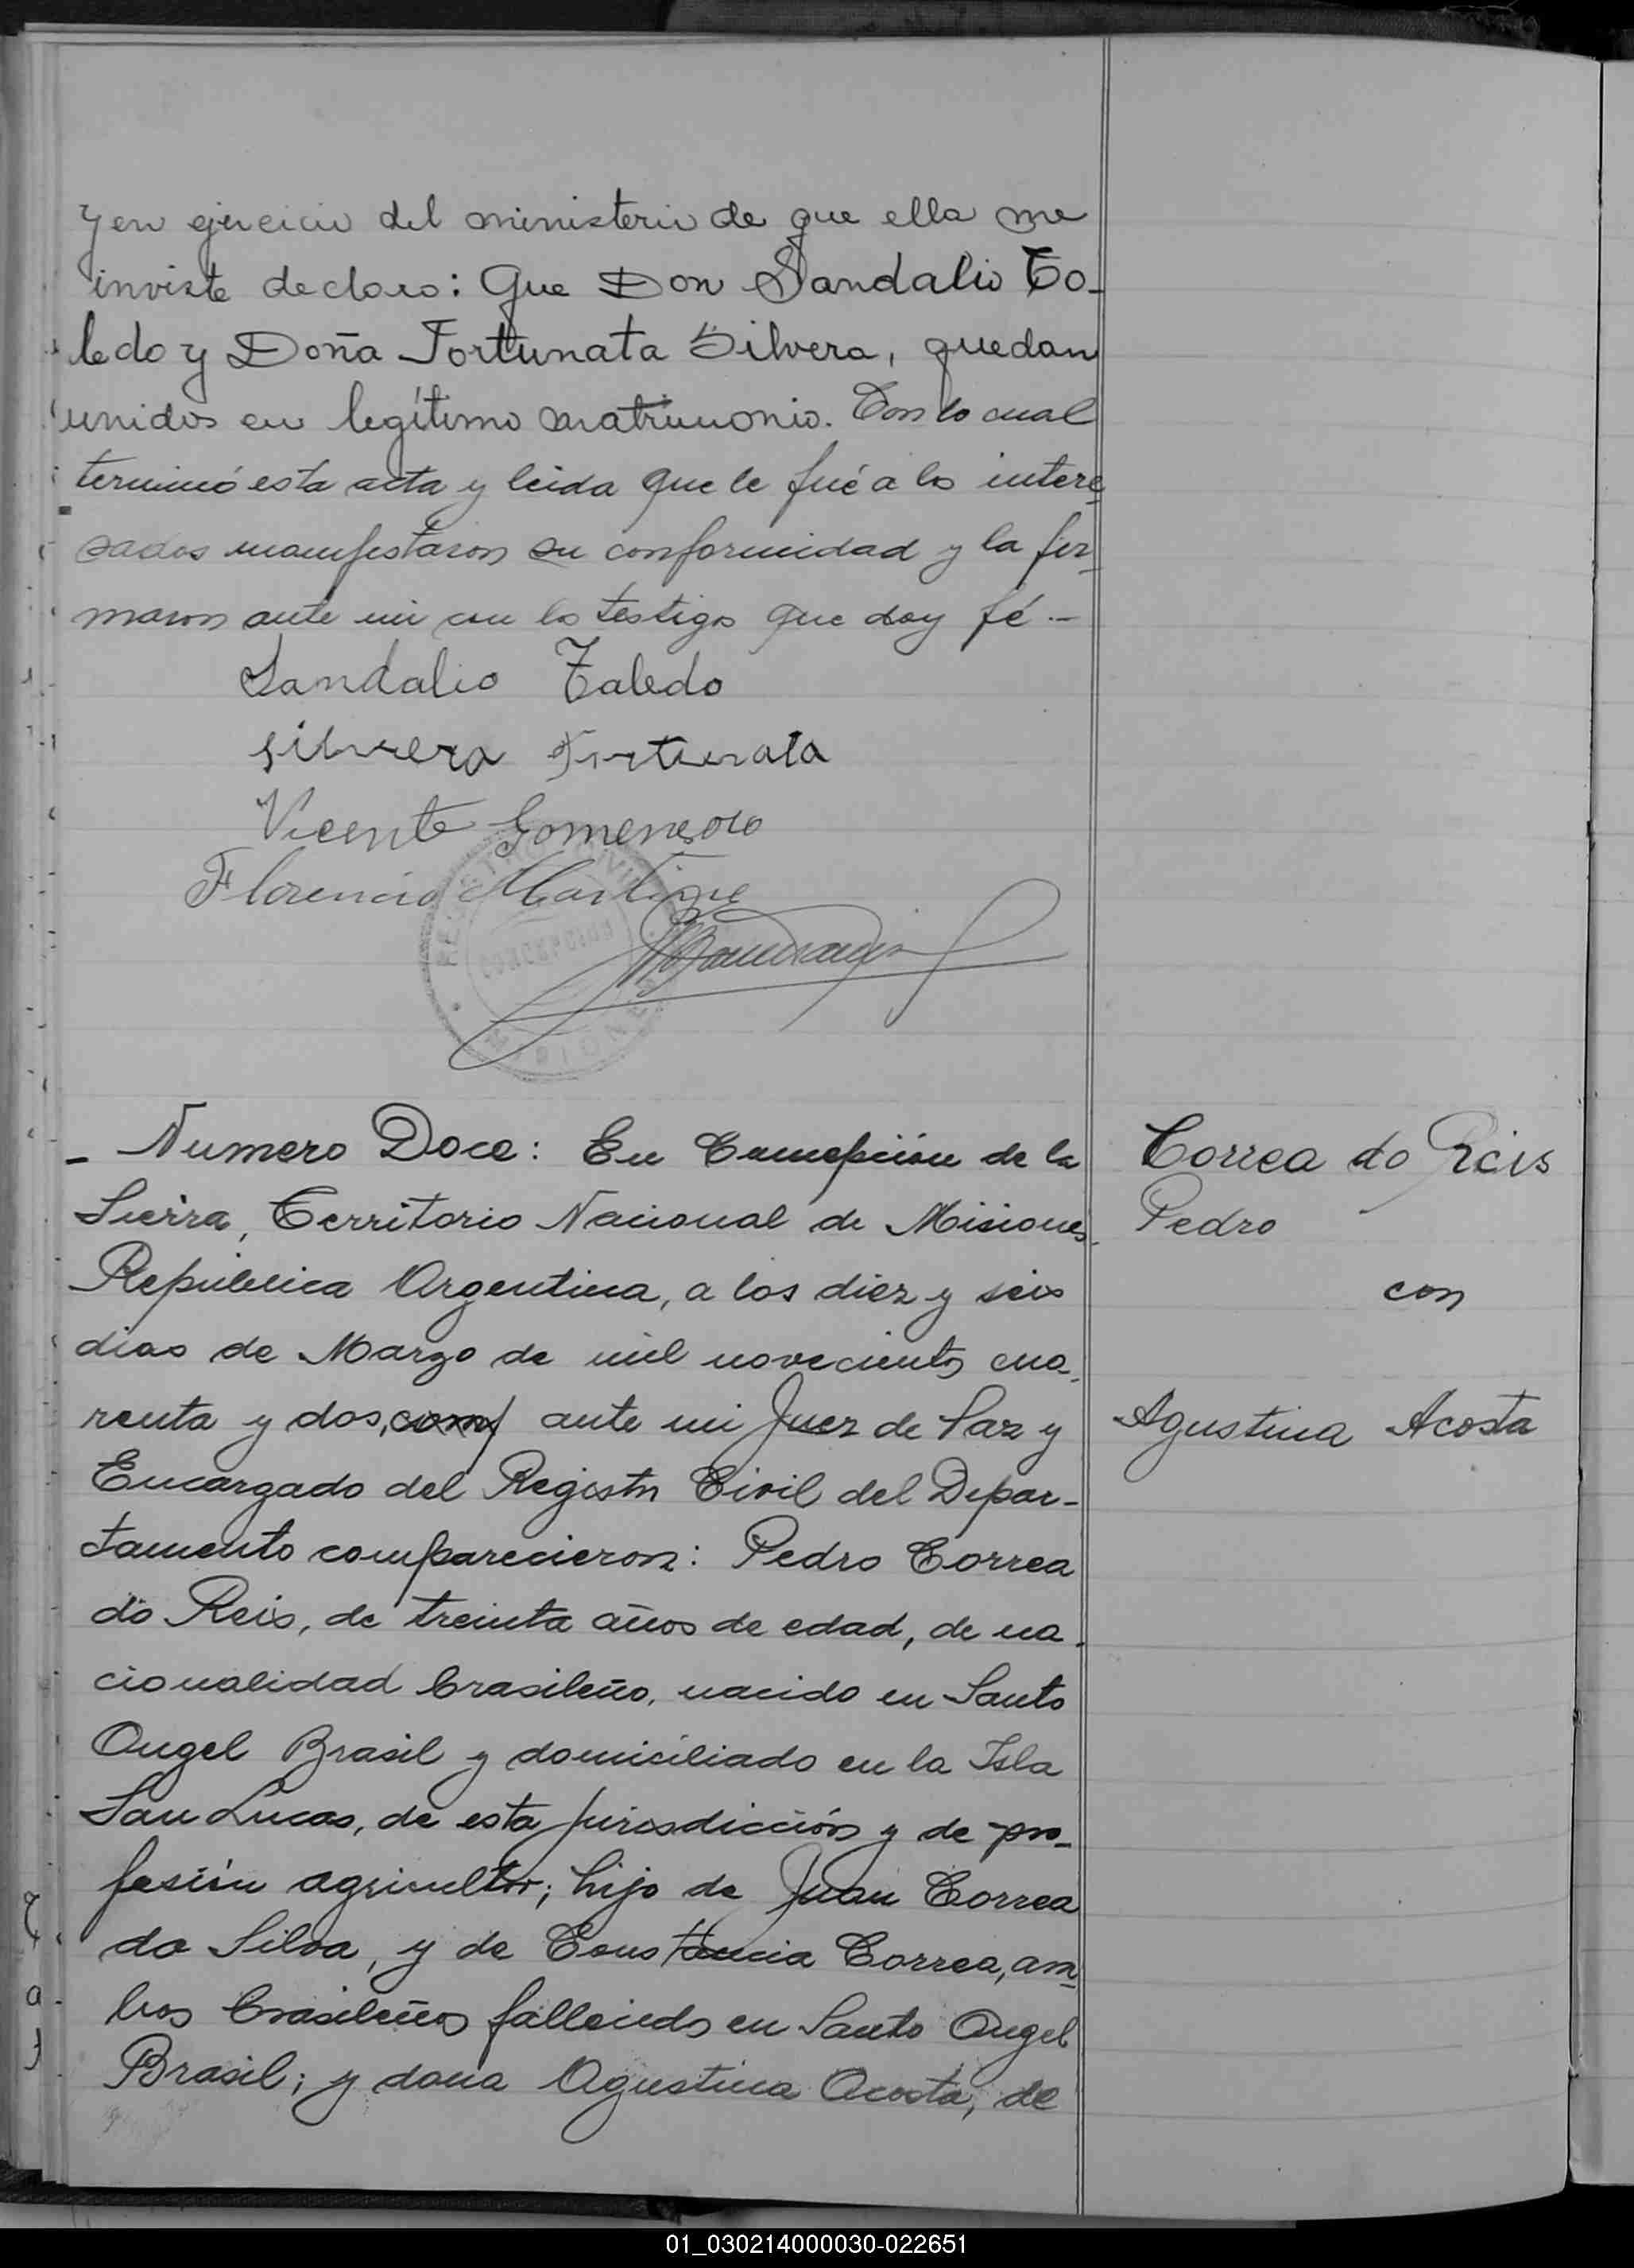 y en ejercicio del ministerio de que ella me
inviste declaro: Que Don Sandalio To-
ledo y Doña Fortunata Silvera, quedan
unidos en legítimo matrimonio. Con lo cual
terminó esta acta y leida que le fué a los intere-
sados manifestaron su conformidad y la fir-
maron ante mi con los testigos que doy fé.-
Sandalio Toledo
Silvera Fortunata
Vicente Gomenzoro
Florencio Martinez
REGISTRO CIVIL
MISIONES
- Numero Doce: En Concepción de la
Sierra, Territorio Nacional de Misiones
República Argentina, a los diez y seis
dias de Marzo de mil novecientos cua-
renta y dos, com ante mi Juez de Paz y
Encargado del Registro Civil del Depar-
tamento comparecieron: Pedro Correa
do Reis, de treinta años de edad, de na-
cionalidad brasileño, nacido en Santo
Angel Brasil y domiciliado en la Isla
San Lucas, de esta jurisdicción y de pro-
fesión agricultor; hijo de Juan Correa
da Silva, y de Constancia Correa, am-
bos brasileños fallecidos en Santo Angel
Brasil; y doña Agustina Acosta, de
Correa do Reis
Pedro
con
Agustina Acosta
01_030214000030-022651